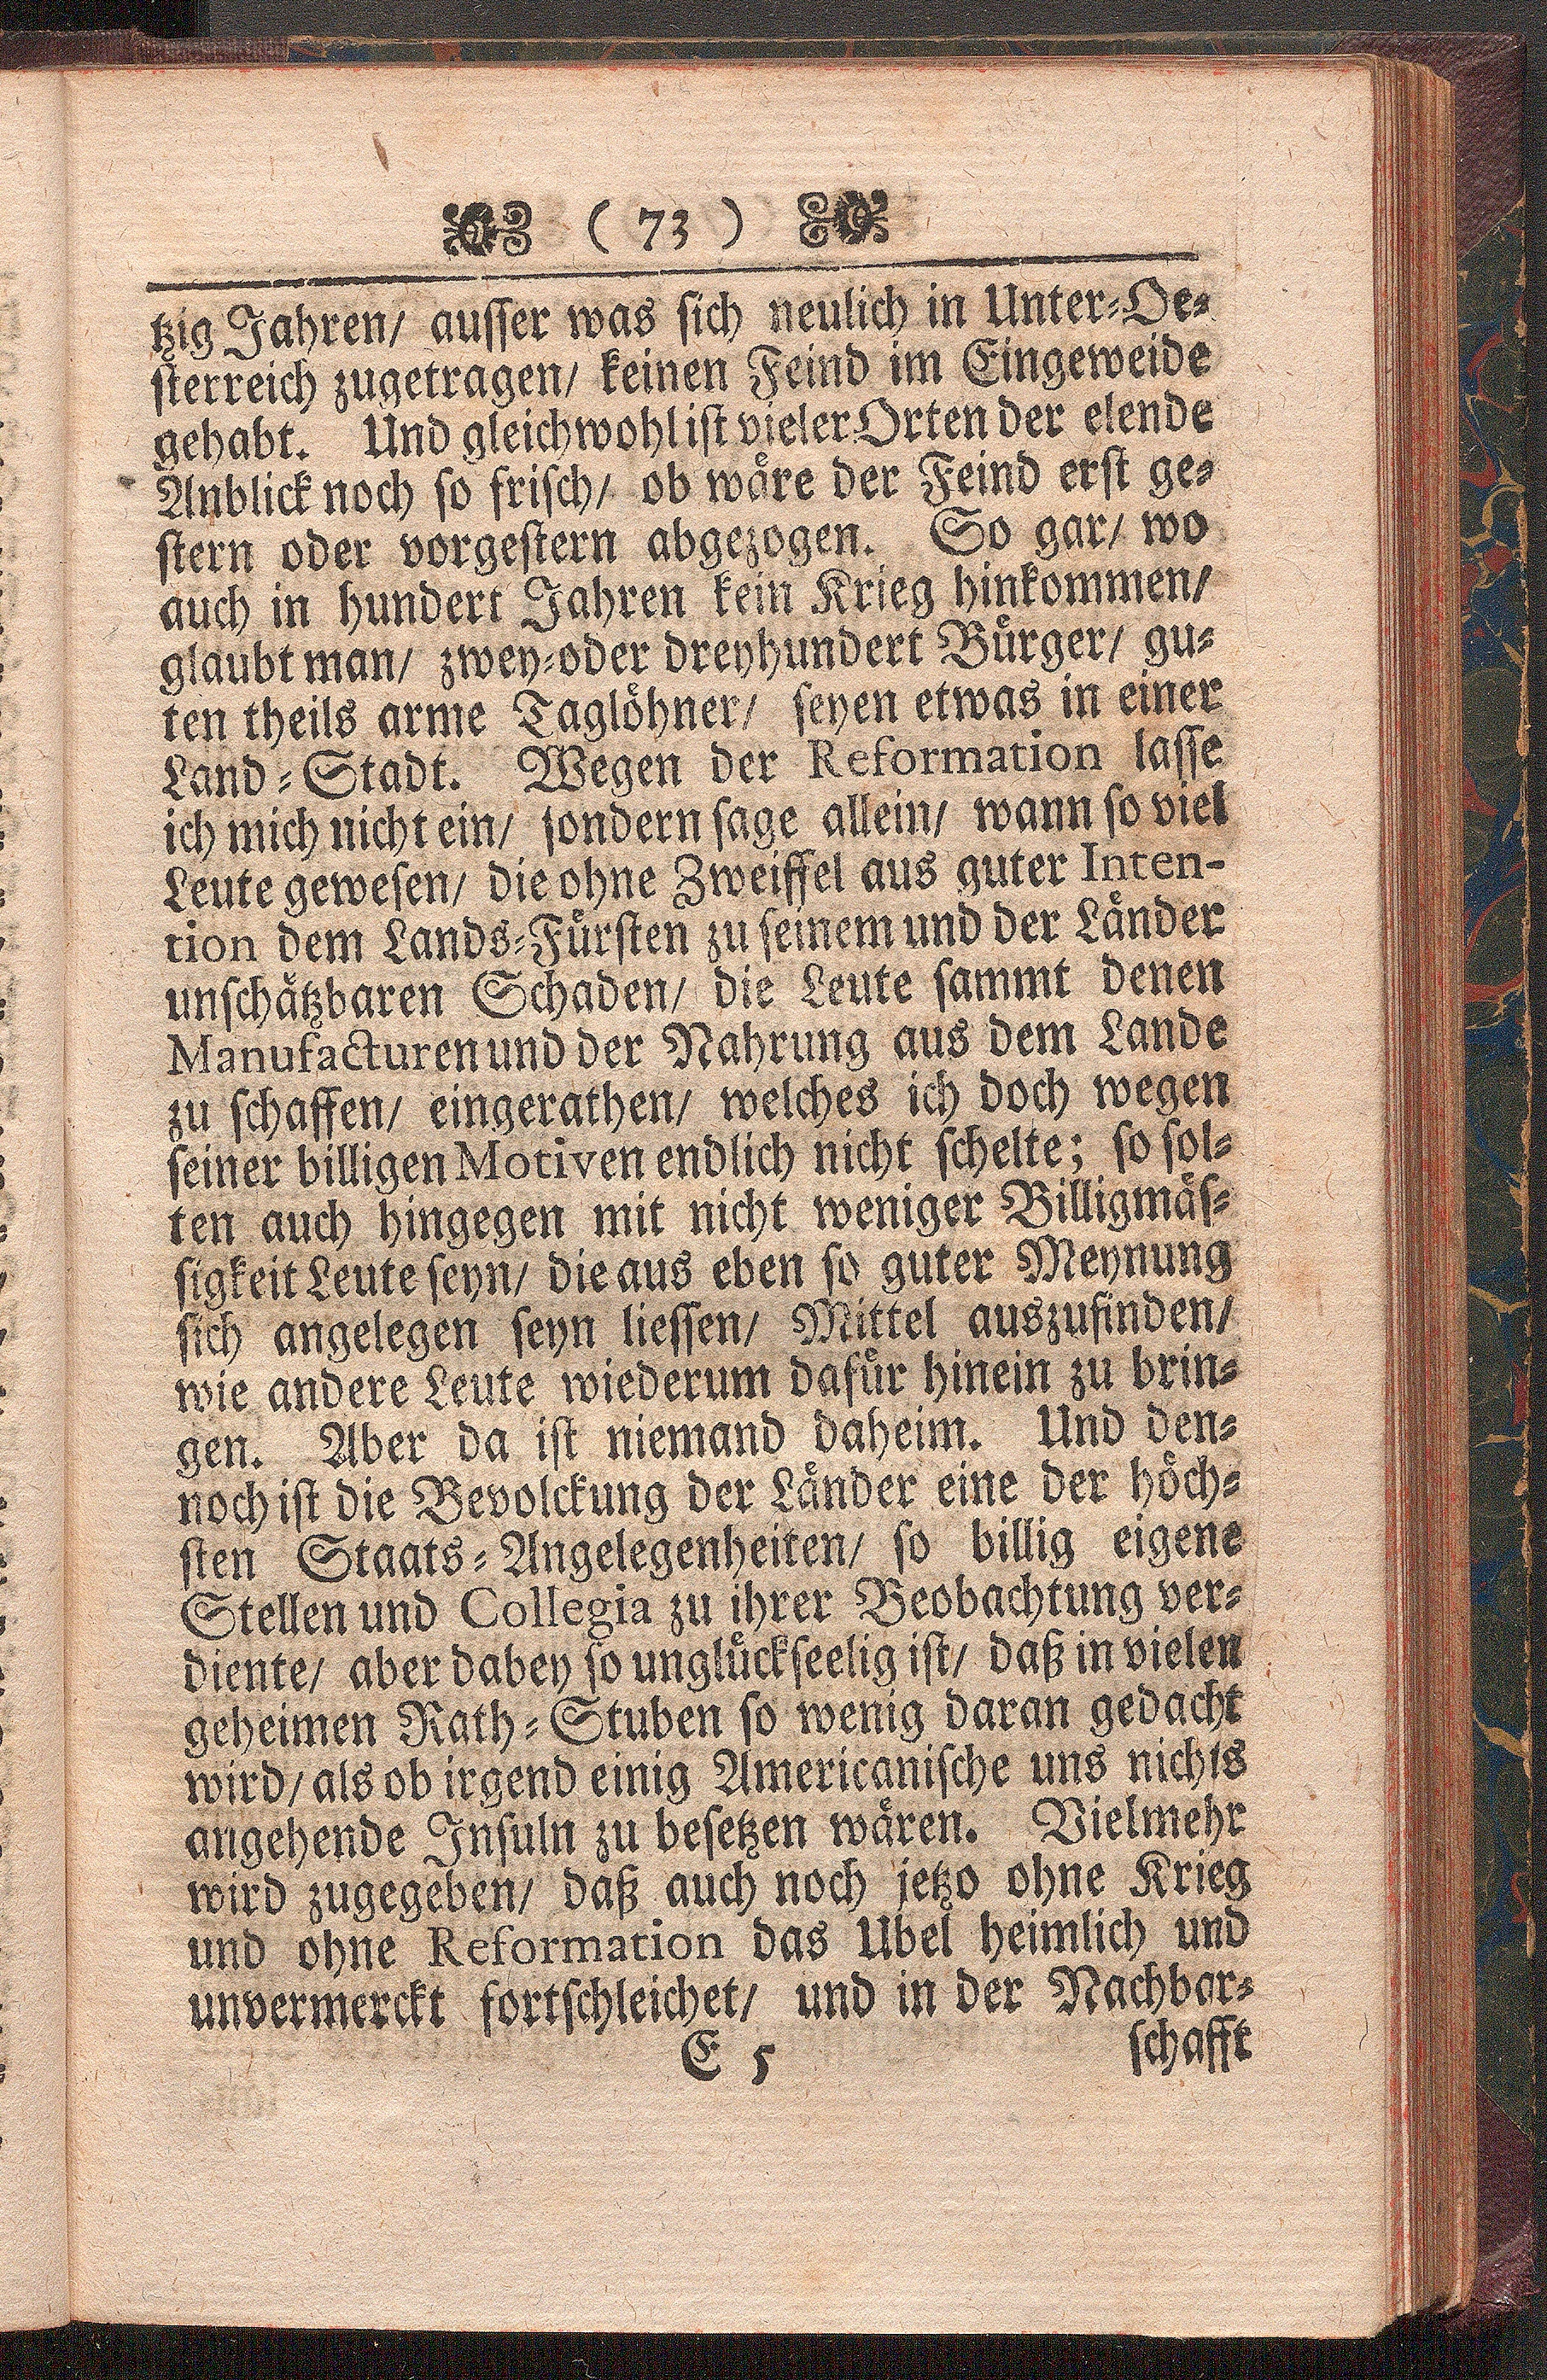 ( 73 )
tzig Jahren/ ausser was sich neulich in Unter-Oe-
sterreich zugetragen/ keinen Feind im Eingeweide
gehabt. Und gleichwohl ist vieler Orten der elende
Anblick noch so frisch/ ob wäre der Feind erst ge-
stern oder vorgestern abgezogen. So gar/ wo
auch in hundert Jahren kein Krieg hinkommen/
glaubt man/ zwey-oder dreyhundert Bürger/ gu-
ten theils arme Taglöhner/ seyen etwas in einer
Land-Stadt. Wegen der Reformation lasse
ich mich nicht ein/ sondern sage allein/ wann so viel
Leute gewesen/ die ohne Zweiffel aus guter Inten-
tion dem Lands-Fürsten zu seinem und der Länder
unschätzbaren Schaden/ die Leute sammt denen
Manufacturen und der Nahrung aus dem Lande
zu schaffen/ eingerathen/ welches ich doch wegen
seiner billigen Motiven endlich nicht schelte; so sol-
ten auch hingegen mit nicht weniger Billigmäs-
sigkeit Leute seyn/ die aus eben so guter Meynung
sich angelegen seyn liessen/ Mittel auszufinden/
wie andere Leute wiederum dafür hinein zu brin-
gen. Aber da ist niemand daheim. Und den-
noch ist die Bevolckung der Länder eine der höch-
sten Staats-Angelegenheiten/ so billig eigene
Stellen und Collegia zu ihrer Beobachtung ver-
diente/ aber dabey so unglückseelig ist/ daß in vielen
geheimen Rath-Stuben so wenig daran gedacht
wird/ als ob irgend einig Americanische uns nichts
angehende Insuln zu besetzen wären. Vielmehr
wird zugegeben/ daß auch noch jetzo ohne Krieg
und ohne Reformation das Ubel heimlich und
unvermerckt fortschleichet/ und in der Nachbar-
E 5 schafft